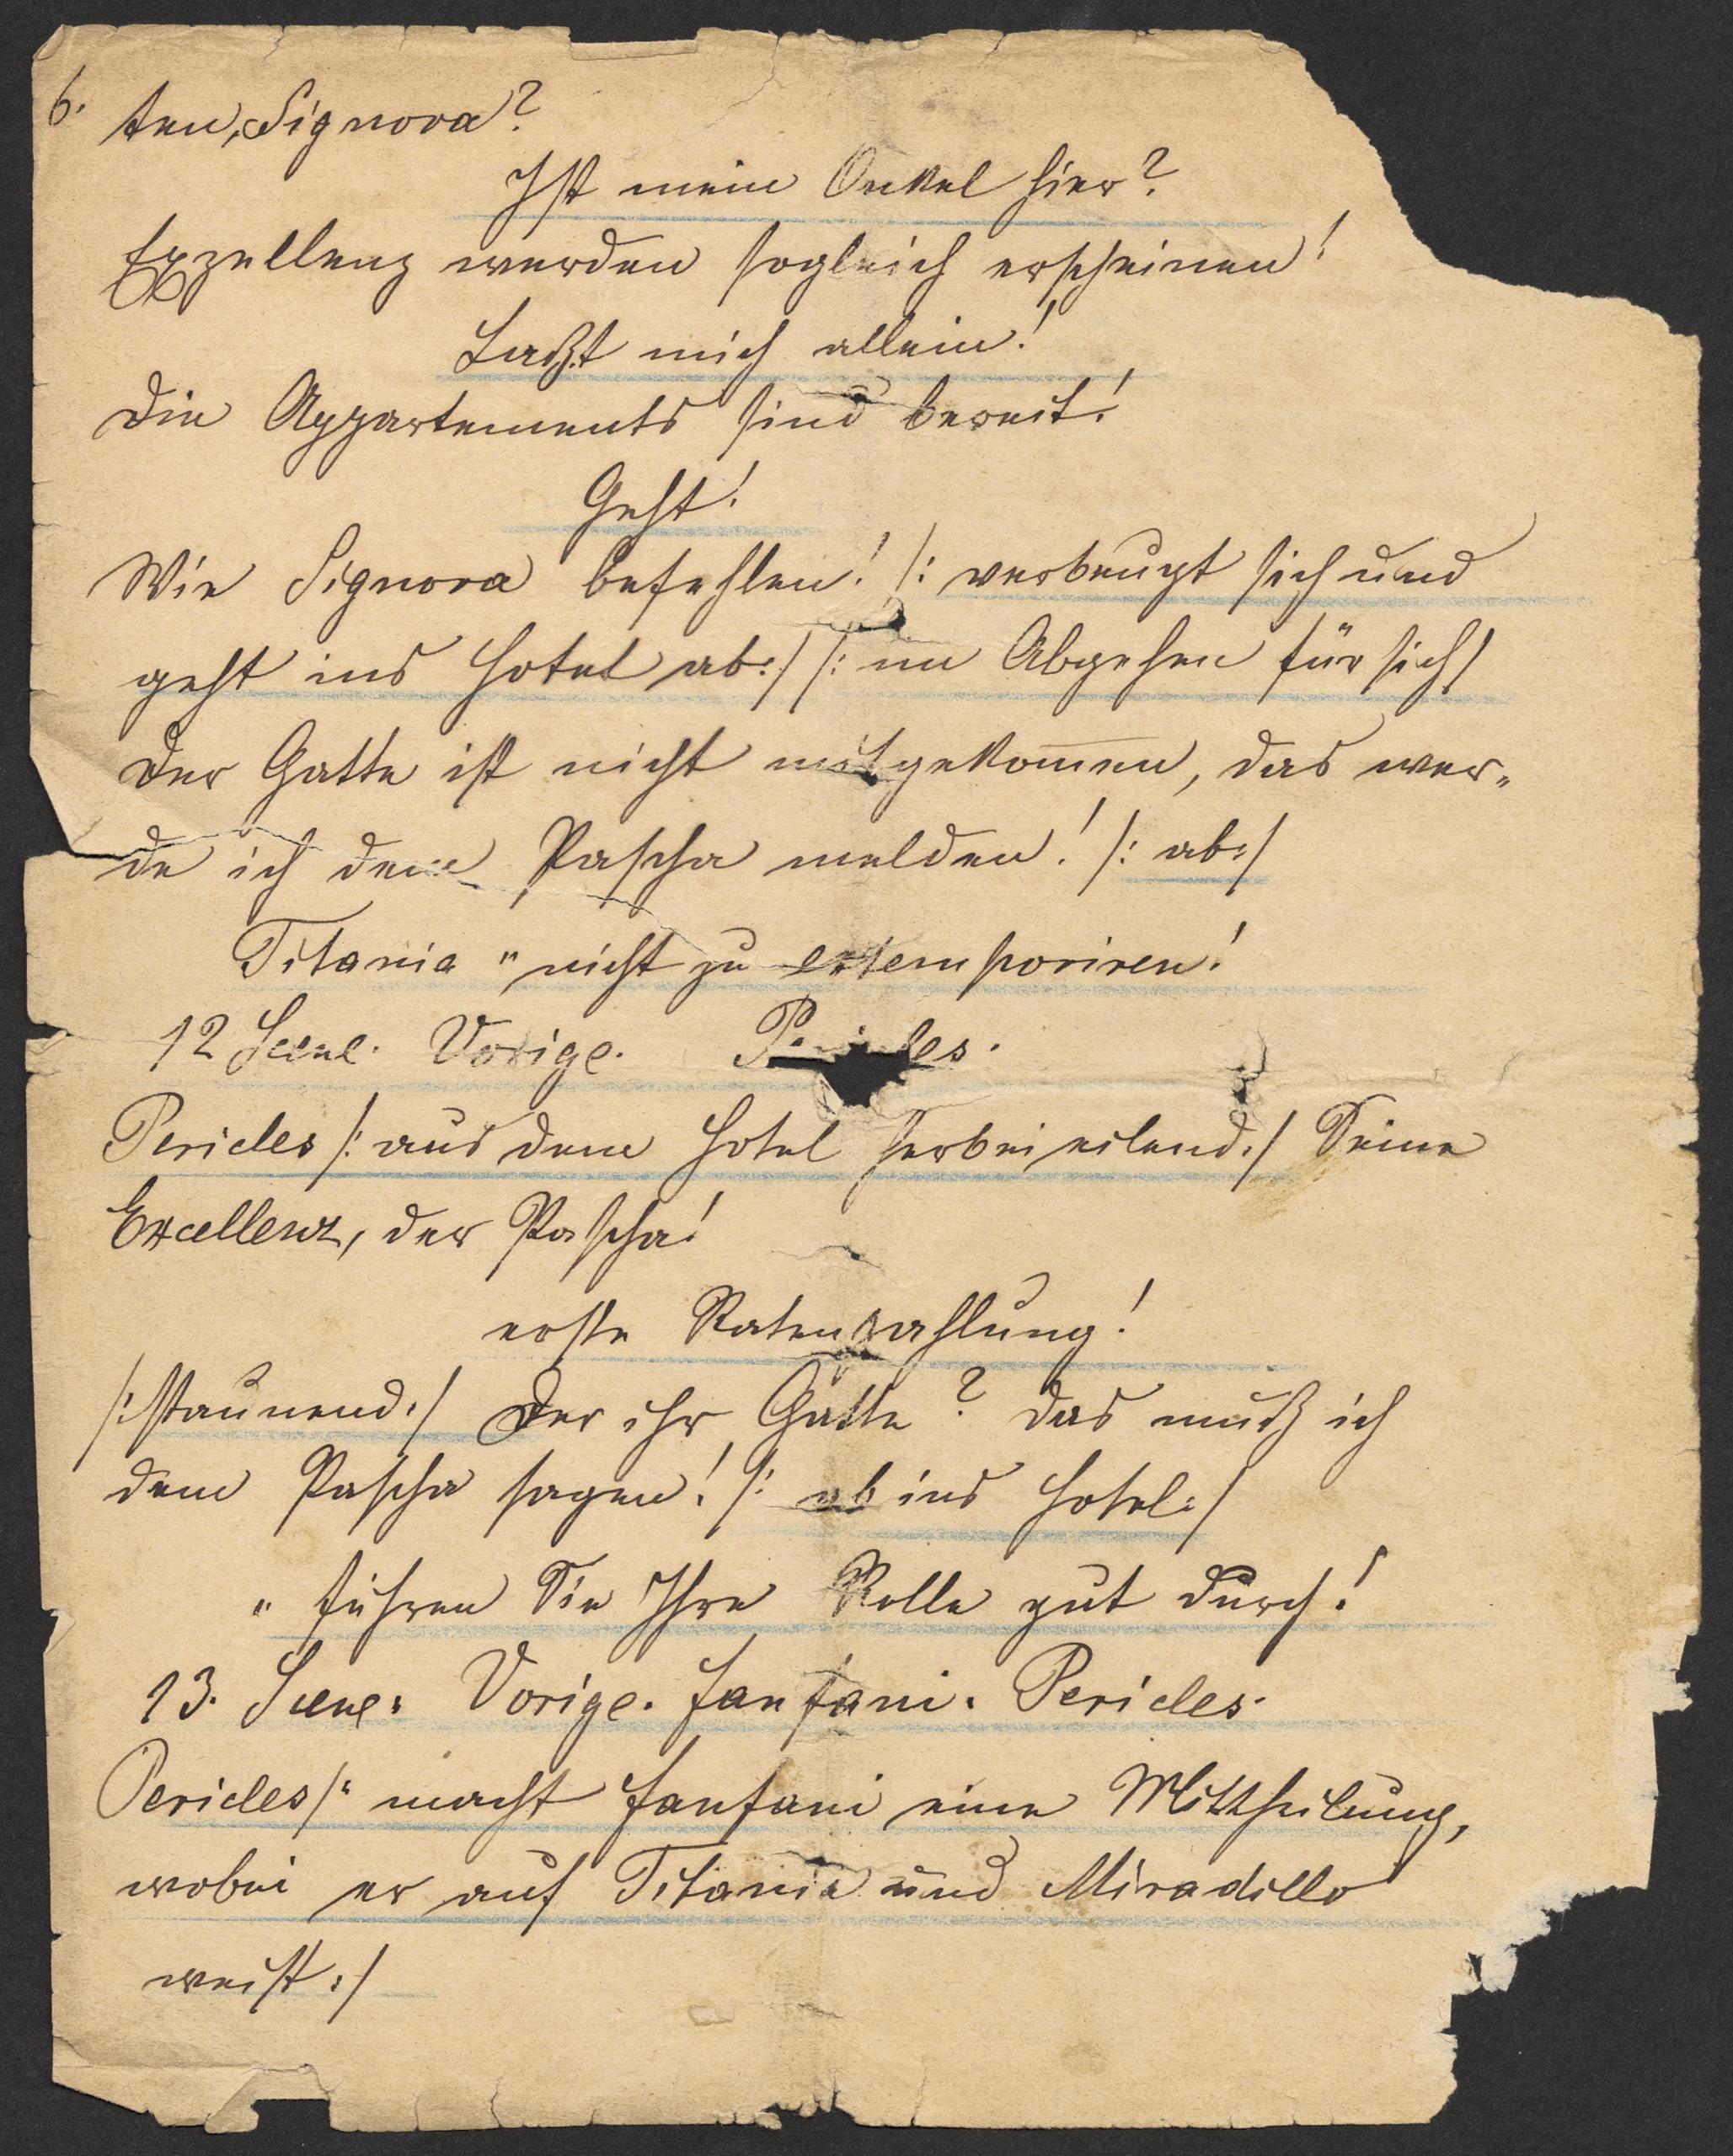 6.
ten, Signora?
Ist mein Onkel hier?
Exzellenz werden sogleich erscheinen!
Laßt mich allein!
Die Appartements sind bereit!
Geht!
Wie Signora befehlen! /: verbeugt sich und
geht ins Hotel ab:/ /: im Abgehen für sich/
Der Gatte ist nicht mitgekom̅en, das wer„
de ich dem Pascha melden! /: ab:/
Titania " nicht zu extemporiren!
12 Scene. Vorige. Pericles.
Pericles /: aus dem Hotel herbeieilend:/ Seine
Excellenz, der Pascha!
erste Ratenzahlung!
/: staunend:/ Der ihr Gatte? Das muß ich
dem Pascha sagen! /: ab ins Hotel:/
" führen Sie Ihre Rolle gut durch!
13. Scene. Vorige. Fanfani. Pericles.
Pericles /: macht Fanfani eine Mittheilung,
wobei er auf Titania und Miradillo
weist:/